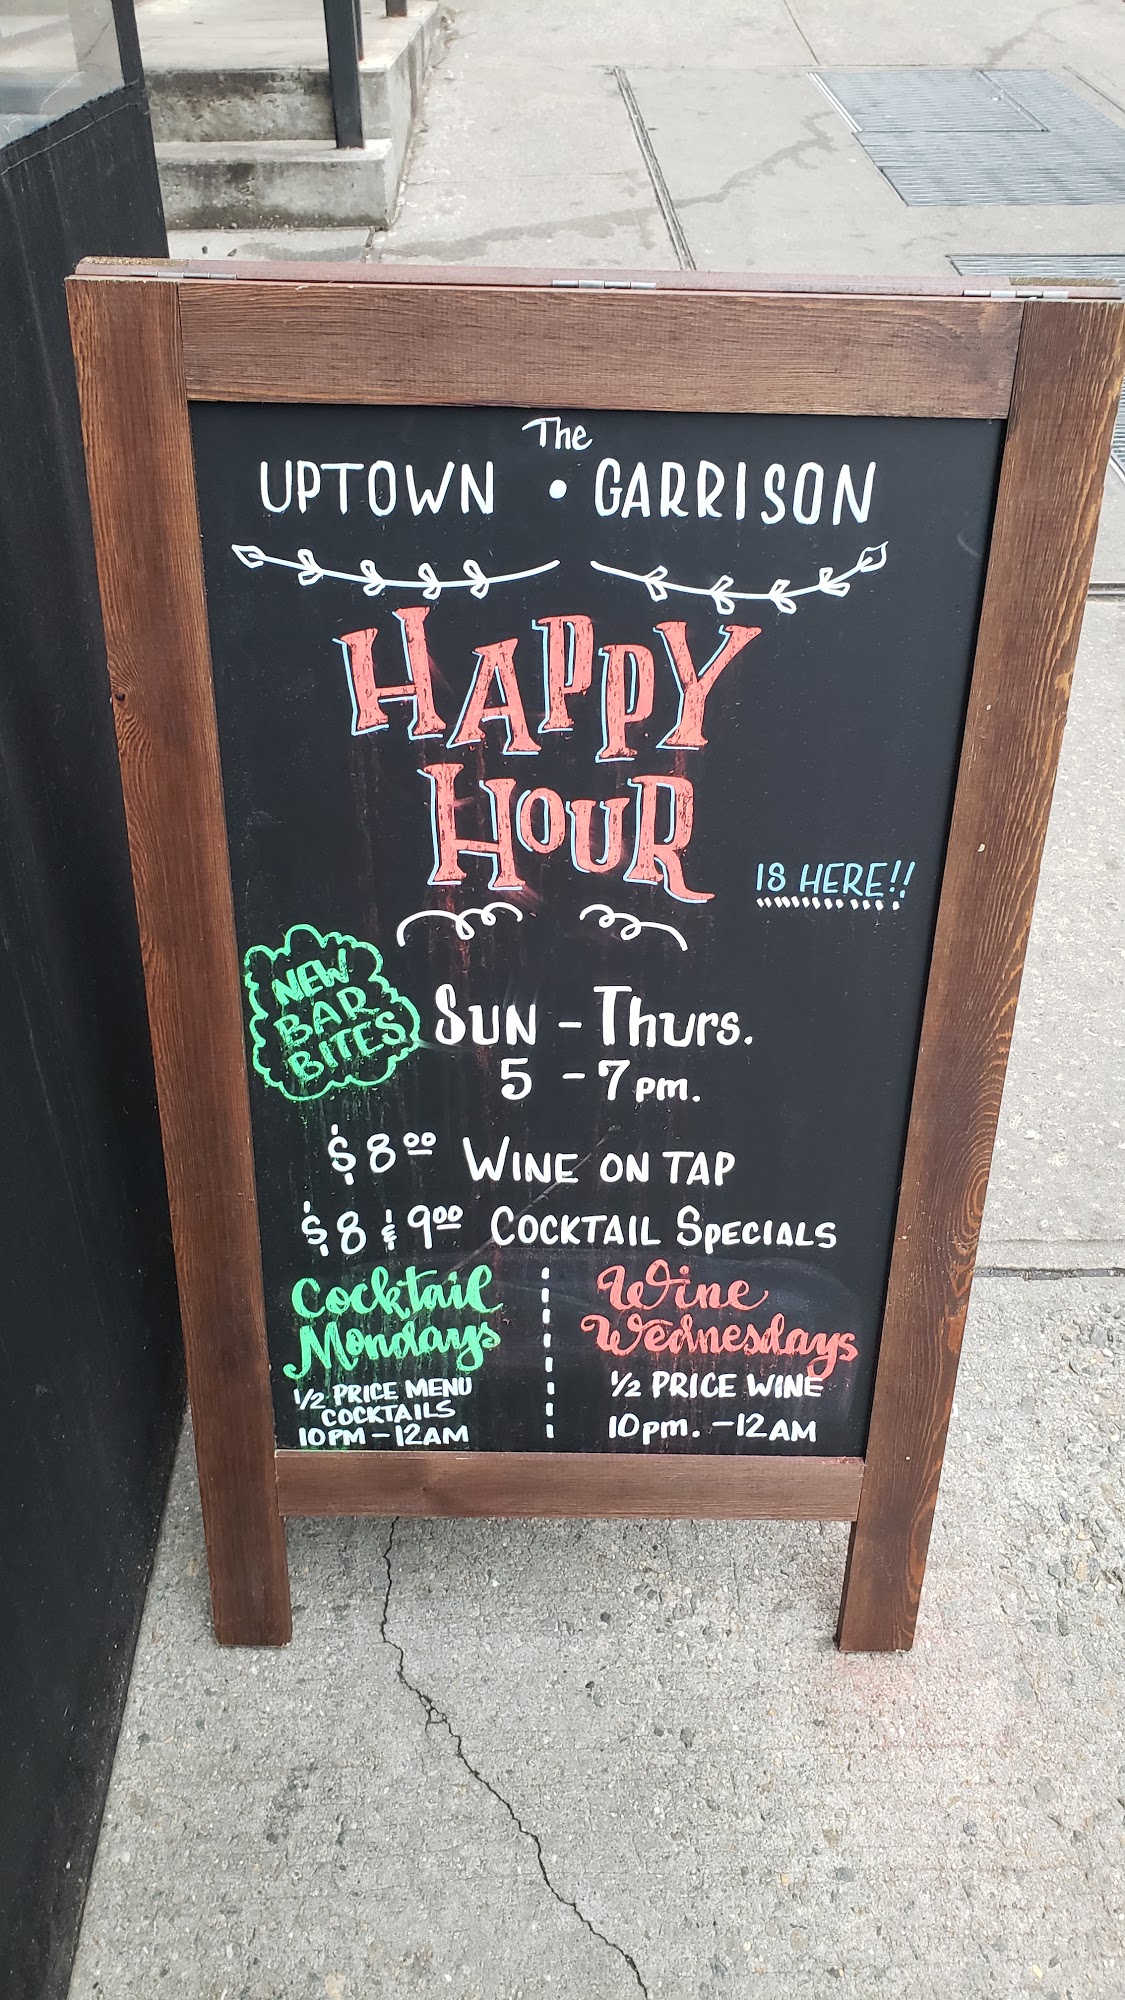 The
UPTOWN • GARRISON
HAPPY
HOUR
IS HERE!!
NEW
BAR
BITES
SUN - Thurs.
5 - 7pm.
$8.00 WINE ON TAP
$8 & 9.00 COCKTAIL SPECIALS
Cocktail
Mondays
1/2 PRICE MENU
COCKTAILS
10PM - 12AM
Wine
Wednesdays
1/2 PRICE WINE
10pm. - 12AM